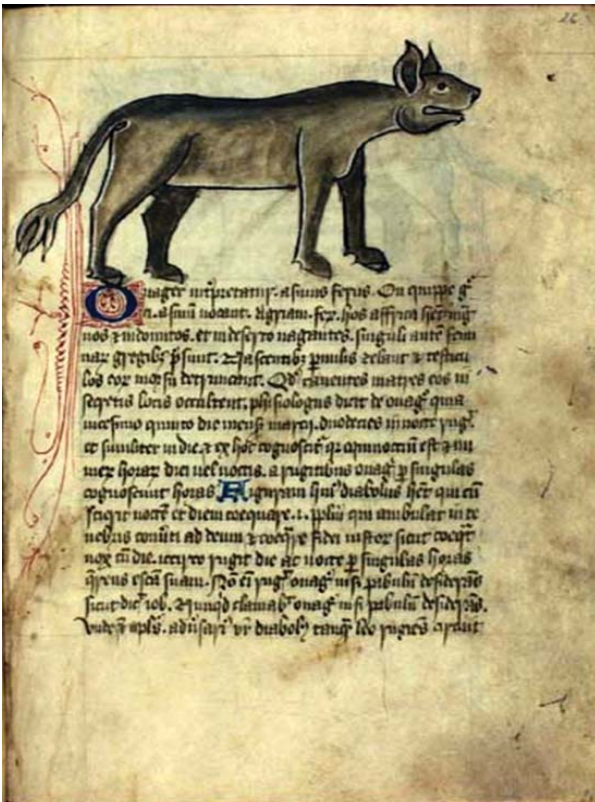 26
Onager int̃pretatur. asinus ferus. On quippe g̃
ci. asinũ uocant. Agriam. fer̃. hos affrica
nos ⁊ indomitos. et in deserto uagantes. singuli autẽ femi
nar̃ gregibꝫ p̃sunt. Nascentibꝫ zelant ⁊ testicu
los eoꝝ morsu detruncant. Qđ cauentes matres eos in
secretis locis occultent. phisiologus dicit de onag̃ quia
uicesimo quinto die mensis marcii. duodecies in nocte rugĩt.
et similiter in die. ⁊ ex hoc cognoscit̃ q̃ equinoctiũ est ⁊ nu
mer horar̃ diei uel noctis. a rugitibus onag̃ ꝑ singulas
cognoscunt horas. Figuram hui' diabolus het̃ qui cũ
scierit noctẽ et diem coequare. .i. pp̃lm qui ambulat in te
nebris conũti ad deum ⁊ coeq̃re fidei iustor sicut coeq̃t̃
nox cũ die. iccirco rugit die ac nocte ꝑ singulas horas
q̃rens escã suam. Nõ eñ rugĩt onag̃ nisi pabulũ desiderãs
sicut dic̃ iob. Nunqđ clamab̃ onag̃ nisi pabulũ desiderãs.
Vnde ⁊ apl̃s. aduẽsari' vr̃ diabol' tanq̃ leo rugiẽs circuit